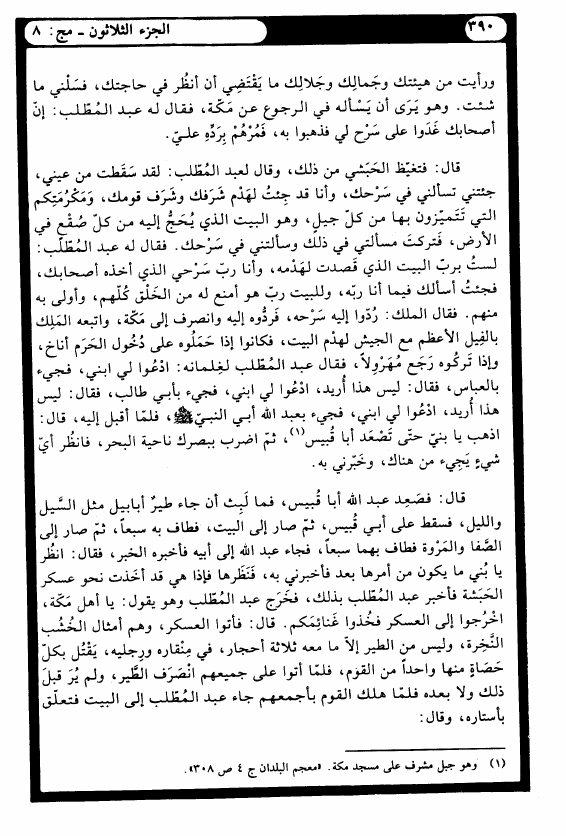 ٣٩٠
الجزء الثلاثون ـ مج: ٨
ورأيت من هيئتك وجَمالِك وجَلالِك ما يَقْتَضِي أن أنظُر في حاجتك، فسَلْني ما
شئت. وهو يَرَى أن يَسأله في الرجوع عن مَكّة، فقال له عبد المُطّلب: إنّ
أصحابك غَدَوا على سَرْح لي فذهبوا به، فَمُرْهُمْ بِرَدِّهِ عليّ.
قال: فتغيّظ الحَبَشي من ذلك، وقال لعبد المُطّلب: لقد سَقَطت من عيني،
جئتني تسألني في سَرْحك، وأنا قد جِئتُ لهَدْم شَرَفك وشَرَف قومك، ومَكْرُمَتِكم
التي تَتَميّزون بها من كلّ جيلٍ، وهو البيت الذي يُحَجُّ إليه من كلّ صُقْع في
الأرض، فتركتَ مسألتي في ذلك وسألتني في سَرْحك. فقال له عبد المُطّلب:
لستُ بربّ البيت الذي قَصدت لهَدْمه، وأنا ربّ سَرْحي الذي أخذه أصحابك،
فجئتُ أسألك فيما أنا ربّه، وللبيت ربّ هو أمنع له من الخَلْق كُلّهم، وأولى به
منهم. فقال الملك: رُدّوا إليه سَرْحه، فَردُّوه إليه وانصرف إلى مَكّة، واتبعه المَلِك
بالفيل الأعظم مع الجيش لهَدْم البيت، فكانوا إذا حَمَلُوه على دُخُول الحَرَم أناخ،
وإذا تَركُوه رَجَع مُهَرْوِلاً، فقال عبد المطلب لغِلمانه: ادْعُوا لي ابني، فجيء
بالعباس، فقال: ليس هذا أُريد، ادْعُوا لي ابني، فجيء بأبي طالب، فقال: ليس
هذا أُريد، ادْعُوا لي ابني، فجيء بعبد الله أبي النبيّ ﷺ، فلمّا أقبل إليه، قال:
اذهب يا بنيّ حتّى تَصْعَد أبا قُبيس(١)، ثمّ اضرب ببصرك ناحية البحر، فانظُر أيّ
شيءٍ يَجِيء من هناك، وخَبّرني به.
قال: فصَعِد عبد الله أبا قُبيس، فما لَبِث أن جاء طيرٌ أبابيل مثل السَّيل
والليل، فسقط على أبي قُبيس، ثمّ صار إلى البيت، فطاف به سبعاً، ثمّ صار إلى
الصَّفا والمَرْوة فطاف بهما سبعاً، فجاء عبد الله إلى أبيه فأخبره الخبر، فقال: انظُر
يا بُني ما يكون من أمرها بعد فأخبرني به، فَنَظَرها فإذا هي قد أخذت نحو عسكر
الحَبَشة فأخبر عبد المُطّلب بذلك، فخَرج عبد المطلب وهو يقول: يا أهل مَكّة،
اخْرجُوا إلى العسكر فخُذوا غَنائِمَكم. قال: فأتوا العسكر، وهم أمثال الخُشُب
النَّخِرة، وليس من الطير إلاّ ما معه ثلاثة أحجار، في مِنْقاره ورِجليه، يَقْتُل بكلّ
حَصَاةٍ منها واحداً من القوم، فلمّا أتوا على جميعهم انْصَرَف الطَّير، ولم يُرَ قبلَ
ذلك ولا بعده فلمّا هلك القوم بأجمعهم جاء عبد المُطّلب إلى البيت فتعلّق
بأستاره، وقال:
(١) وهو جبل مشرف على مسجد مكة. «معجم البلدان ج ٤ ص ٣٠٨».